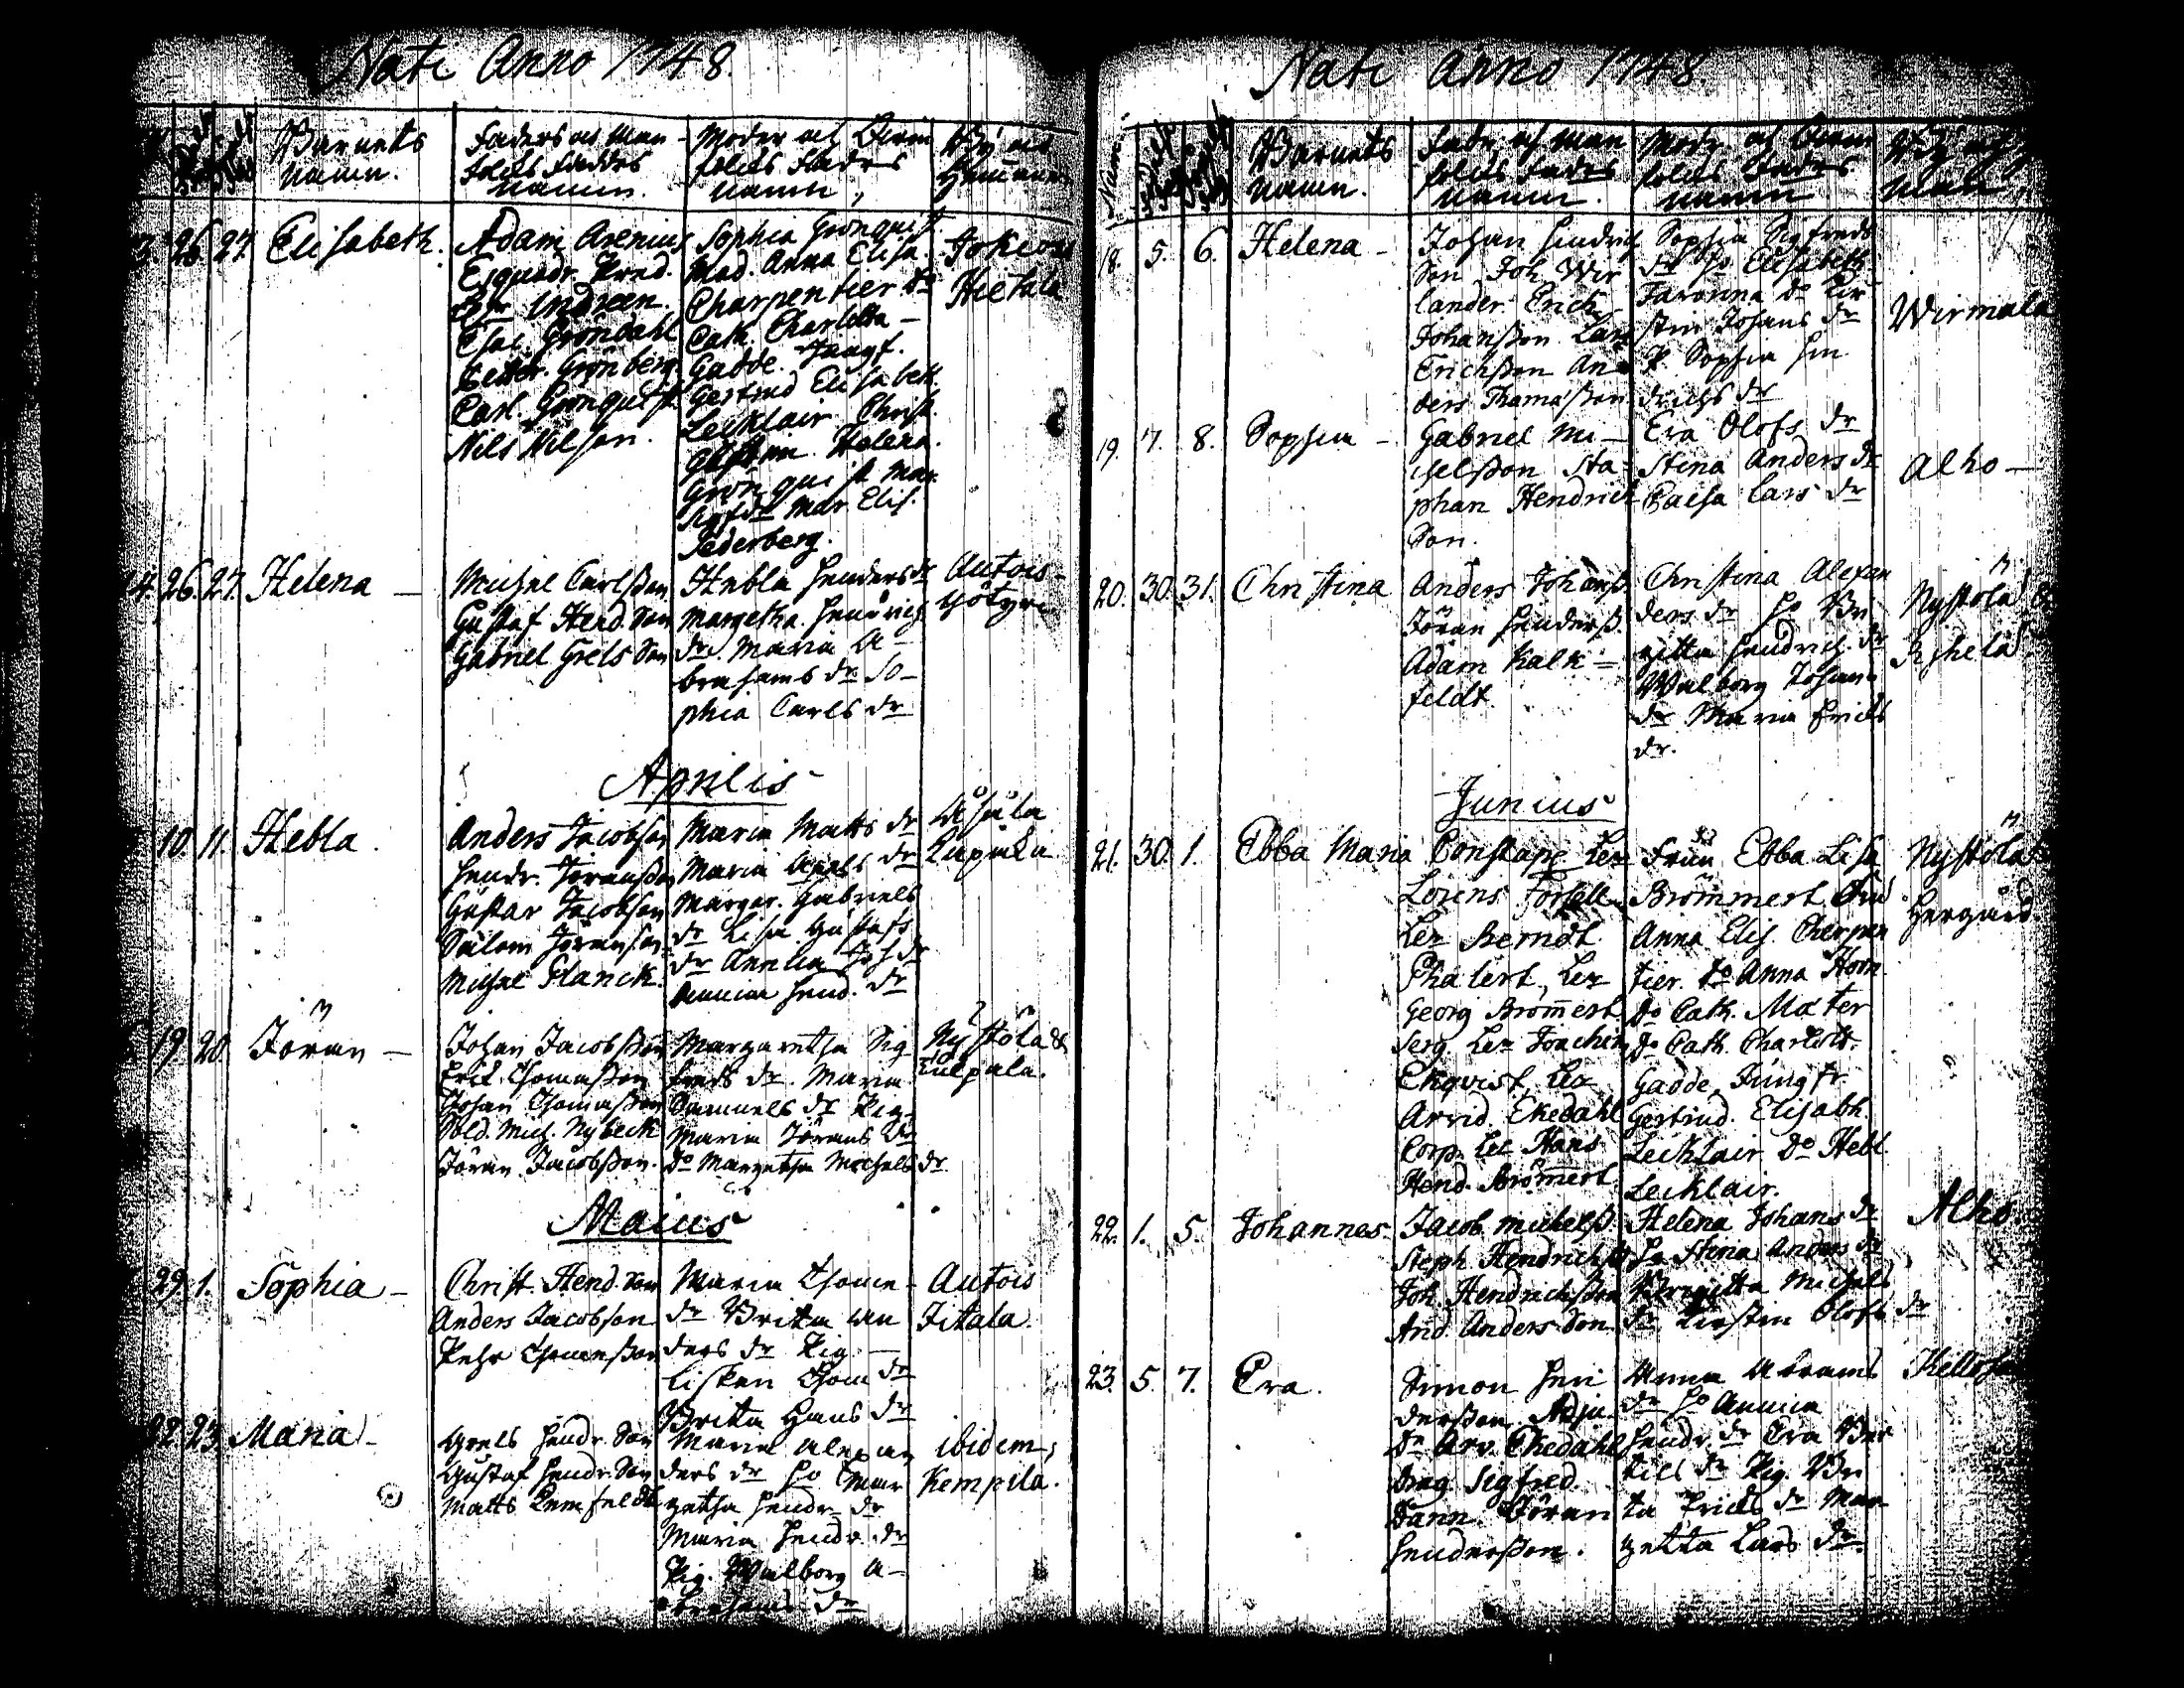 Nati Anno 1748.
Barnets
namn.
Faders och Man-
folks Faddrs
namn.
Moder och Qvin
folks Fadrs
namn,
By och
Hemman
26. 27. Elisabeth.
Adam Arenius
Esquadr. Pred.
Indreen.
Gröndahl
Grönberg.
Carl. Grönquist
Nils Nilson.
Sophia Grönquist.
Mad. Anna Elisa.
Charpentier do
Cath. Charlotta
Gadde. Jungf.
Gertrud Elisabeth.
Lecklair Christ.
Helena.
Grönquist Mar.
Mar Elis.
Sederberg.
Jokiois
Hietala
26. 27. Helena
Michel Carlsson
Gustaf Hend. Son
Gabriel Grels Son
Hebla Henders dr
Margetha Hendrich
dr. Maria A-
brahams dr So-
phia Carls dr
Autois
Götyri
Aprilis
10. 11. Hebla.
Anders Jacobson
Hendr. Joransson
Gustav Jacobson
Salom Joranson
Michel Planck.
Maria Matts dr
Maria Axels dr
Margar. Gabriels
dr Lisa Gustafs
dr Annlia Joh dr
Annica Hend. dr
19. 20. Jöran
Johan Jacobsson
Erich Thomasson
Johan Thomasson
Sold. Mich. Nybeck
Jöran Jacobsson.
Margaretha Sig
freds dr. Maria
Samuels dr Pig.
Maria Jörans dr
do Margetha Michels dr
Nystöla &
Kulpala.
Maius
29. 1. Sophia
Christ. Hend. Son
Anders Jacobson
Pehr Thomasson
Maria Thome
dr Brita An
ders dr Pig.
Lisken Thom dr
Brita Hans dr
Autois
Jitala
22. 23. Maria
Grels Hendr. Son
Gustaf Hendr. Son
Matts Lemfeldt
Maria Alexan
ders dr Ho Mar
getha Hendr. dr
Maria Hendr. dr
Pig. Walborg A-
brahams dr
ibidem,
Kempila.
Nati Anno 1748.
Numr.
Barnets
namn.
Fadr. och Man
folks Fadrs
namn.
Modr. och Qvin
folks Fadrs
namn
By och
18. 5. 6. Helena
Johan Hindrich
Son Joh. Wir
lander Erich
Johansson Lars
Erichsson An
ders Thomasson
Sophia Sigfreds
dr Ho Elisabeth
Faronna do Kir
stin Johans dr
P. Sophia Hin
drichs dr
Wirmala
19. 7. 8. Sophia
Gabriel Mi-
chelsson Sta-
phan Hendrich
Son.
Eva Olofs dr
Stina Anders dr
Caisa Lars dr
Alho
20. 30. 31. Christina
Anders Johanss.
Jöran Henderss.
Adam Kalk=
feldt.
Christina Alexan
ders dr Ho Bri
gitta Hendrich. dr
Walborg Johans
dr Maria Erichs
dr.
Nystöla &
Junius
21. 30. 1. Ebba Maria
Constape Ler
Lorens Forsell
Ler Berndt
Phalert, Ler
Georg Brommert.
Serg. Ler Joachim
Ekqvist, Ler
Arvid Ekedahl
Corp. Ler Hans
Hend. Brömmert
Fruu Ebba Lisa
Brömmert, Fru
Anna Elis. Cherpen
tier. do Anna Horn
do Cath. Mater
do Cath. Charlott.
Gadde, Jungfr
Gertrud. Elisabh.
Lecklair Do Hebl.
Lecklair.
Nystöla &
Hergård.
22. 1. 5. Johannes
Jacob Michelss.
Steph. Hendrichss
Joh. Hendrichsson
And. Anders Son
Helena Johans dr
Ho Stina Anders dr
Birgitta Michels
dr Kirstin Olofs dr
Alho.
23. 5. 7. Eva.
Simon Hen
dersson. Adju.
Arv. Ekedahl
Drag Sigfred.
Dann. Jöran
Hendersson.
Anna Abrams
dr Ho Annica
Hendr. dr Eva Ber
tils dr Pig. Bri
ta Erichs dr Mar
getta Lars dr.